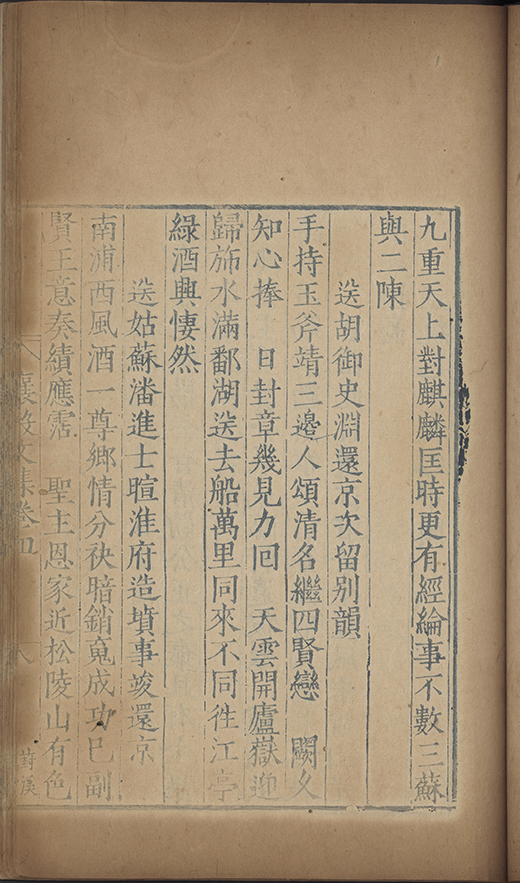 九重天上對麒麟匡時更有經綸事不數三蘇
與二陳
送胡御史淵還京次留別韻
手持玉斧靖三邊人頌清名繼四賢戀　闕久
知心捧　日封章幾見力回　天雲開廬嶽迎
歸斾水滿鄱湖送去船萬里同來不同徃江亭
綠酒興悽然
送姑蘇潘進士暄淮府造墳事竣還京
南浦西風酒一尊鄉情分袂暗銷䰟成功已副
賢王意奏績應霑　聖主恩家近松陵山有色
襄敏文集卷四
八